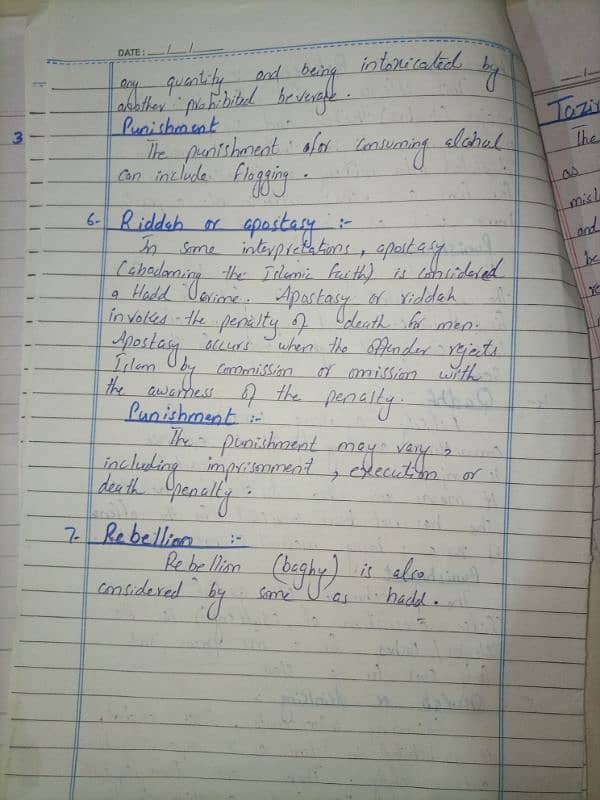 DATE: __/__/__
any quantity and being intoxicated by
another prohibited beverage.
Punishment
The punishment for consuming alcohal
can include flogging.
6- Riddah or apostasy :-
In some interpretations, apostasy
(abadoming the Islamic faith) is considered
a Hadd crime. Apostasy or riddah
invokes the penalty of death for men.
Apostasy occurs when the offender rejects
Islam by commission or omission with
the awarness of the penalty.
Punishment :-
The punishment may vary,
including imprisonment, execution or
death penalty.
7- Rebellion :-
Rebellion (baghy) is also
considered by some as hadd.
3
Tazir
The
as
misl
and
be